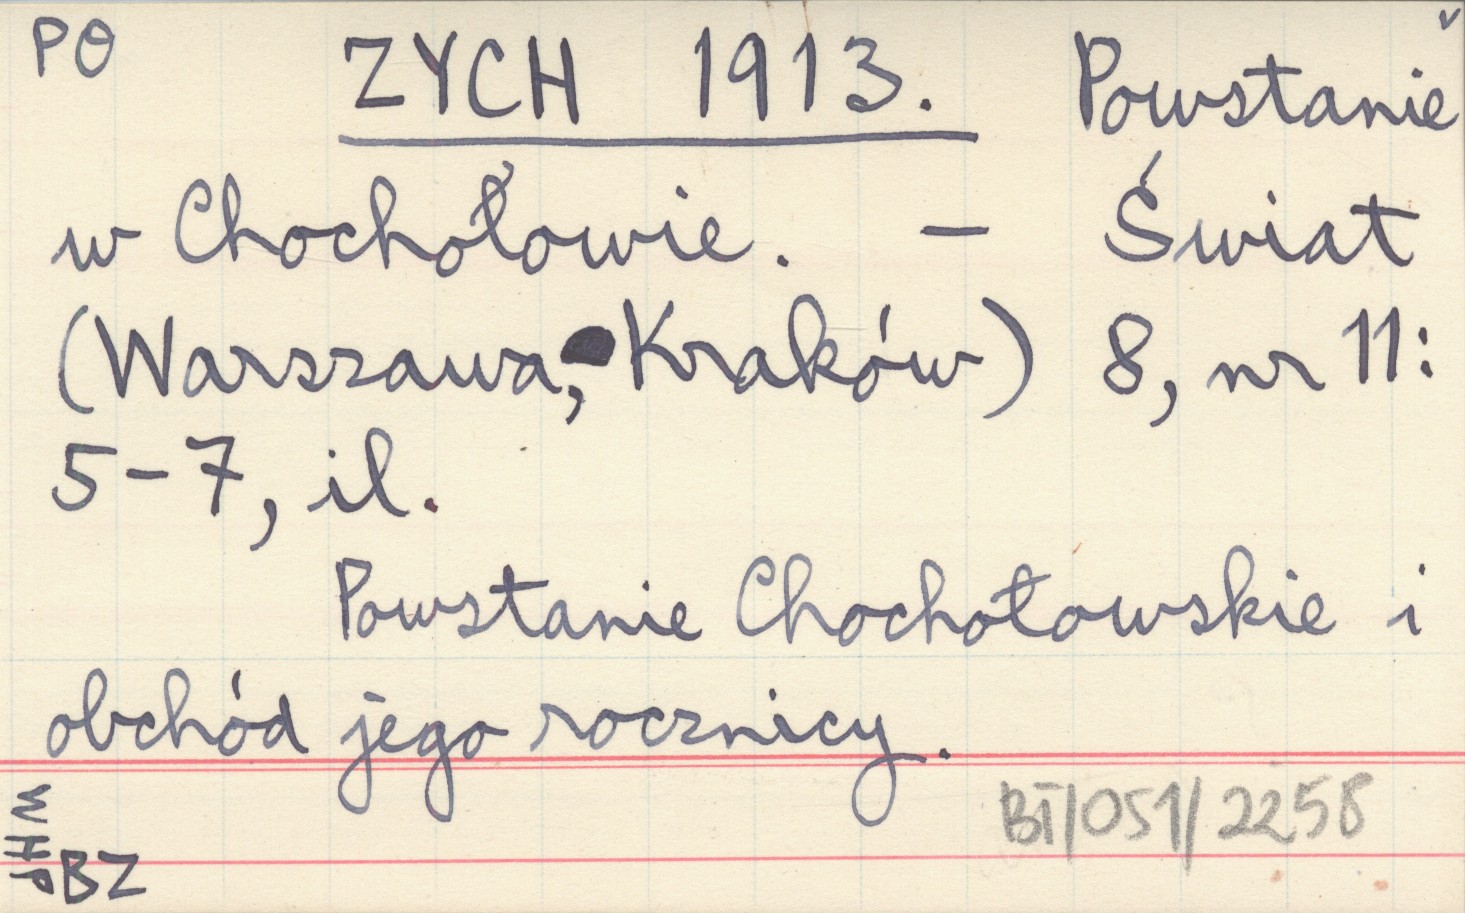 PO ZYCH 1913. Powstanie
w Chochołowie. - Świat
(Warszawa, Kraków) 8, nr 11:
5-7, il.
Powstanie Chochołowskie i
obchód jego rocznicy.
BT/051/2258
WHP
BZ